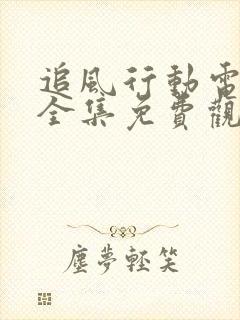 追風行動電
全集免費觀
塵夢輕笑